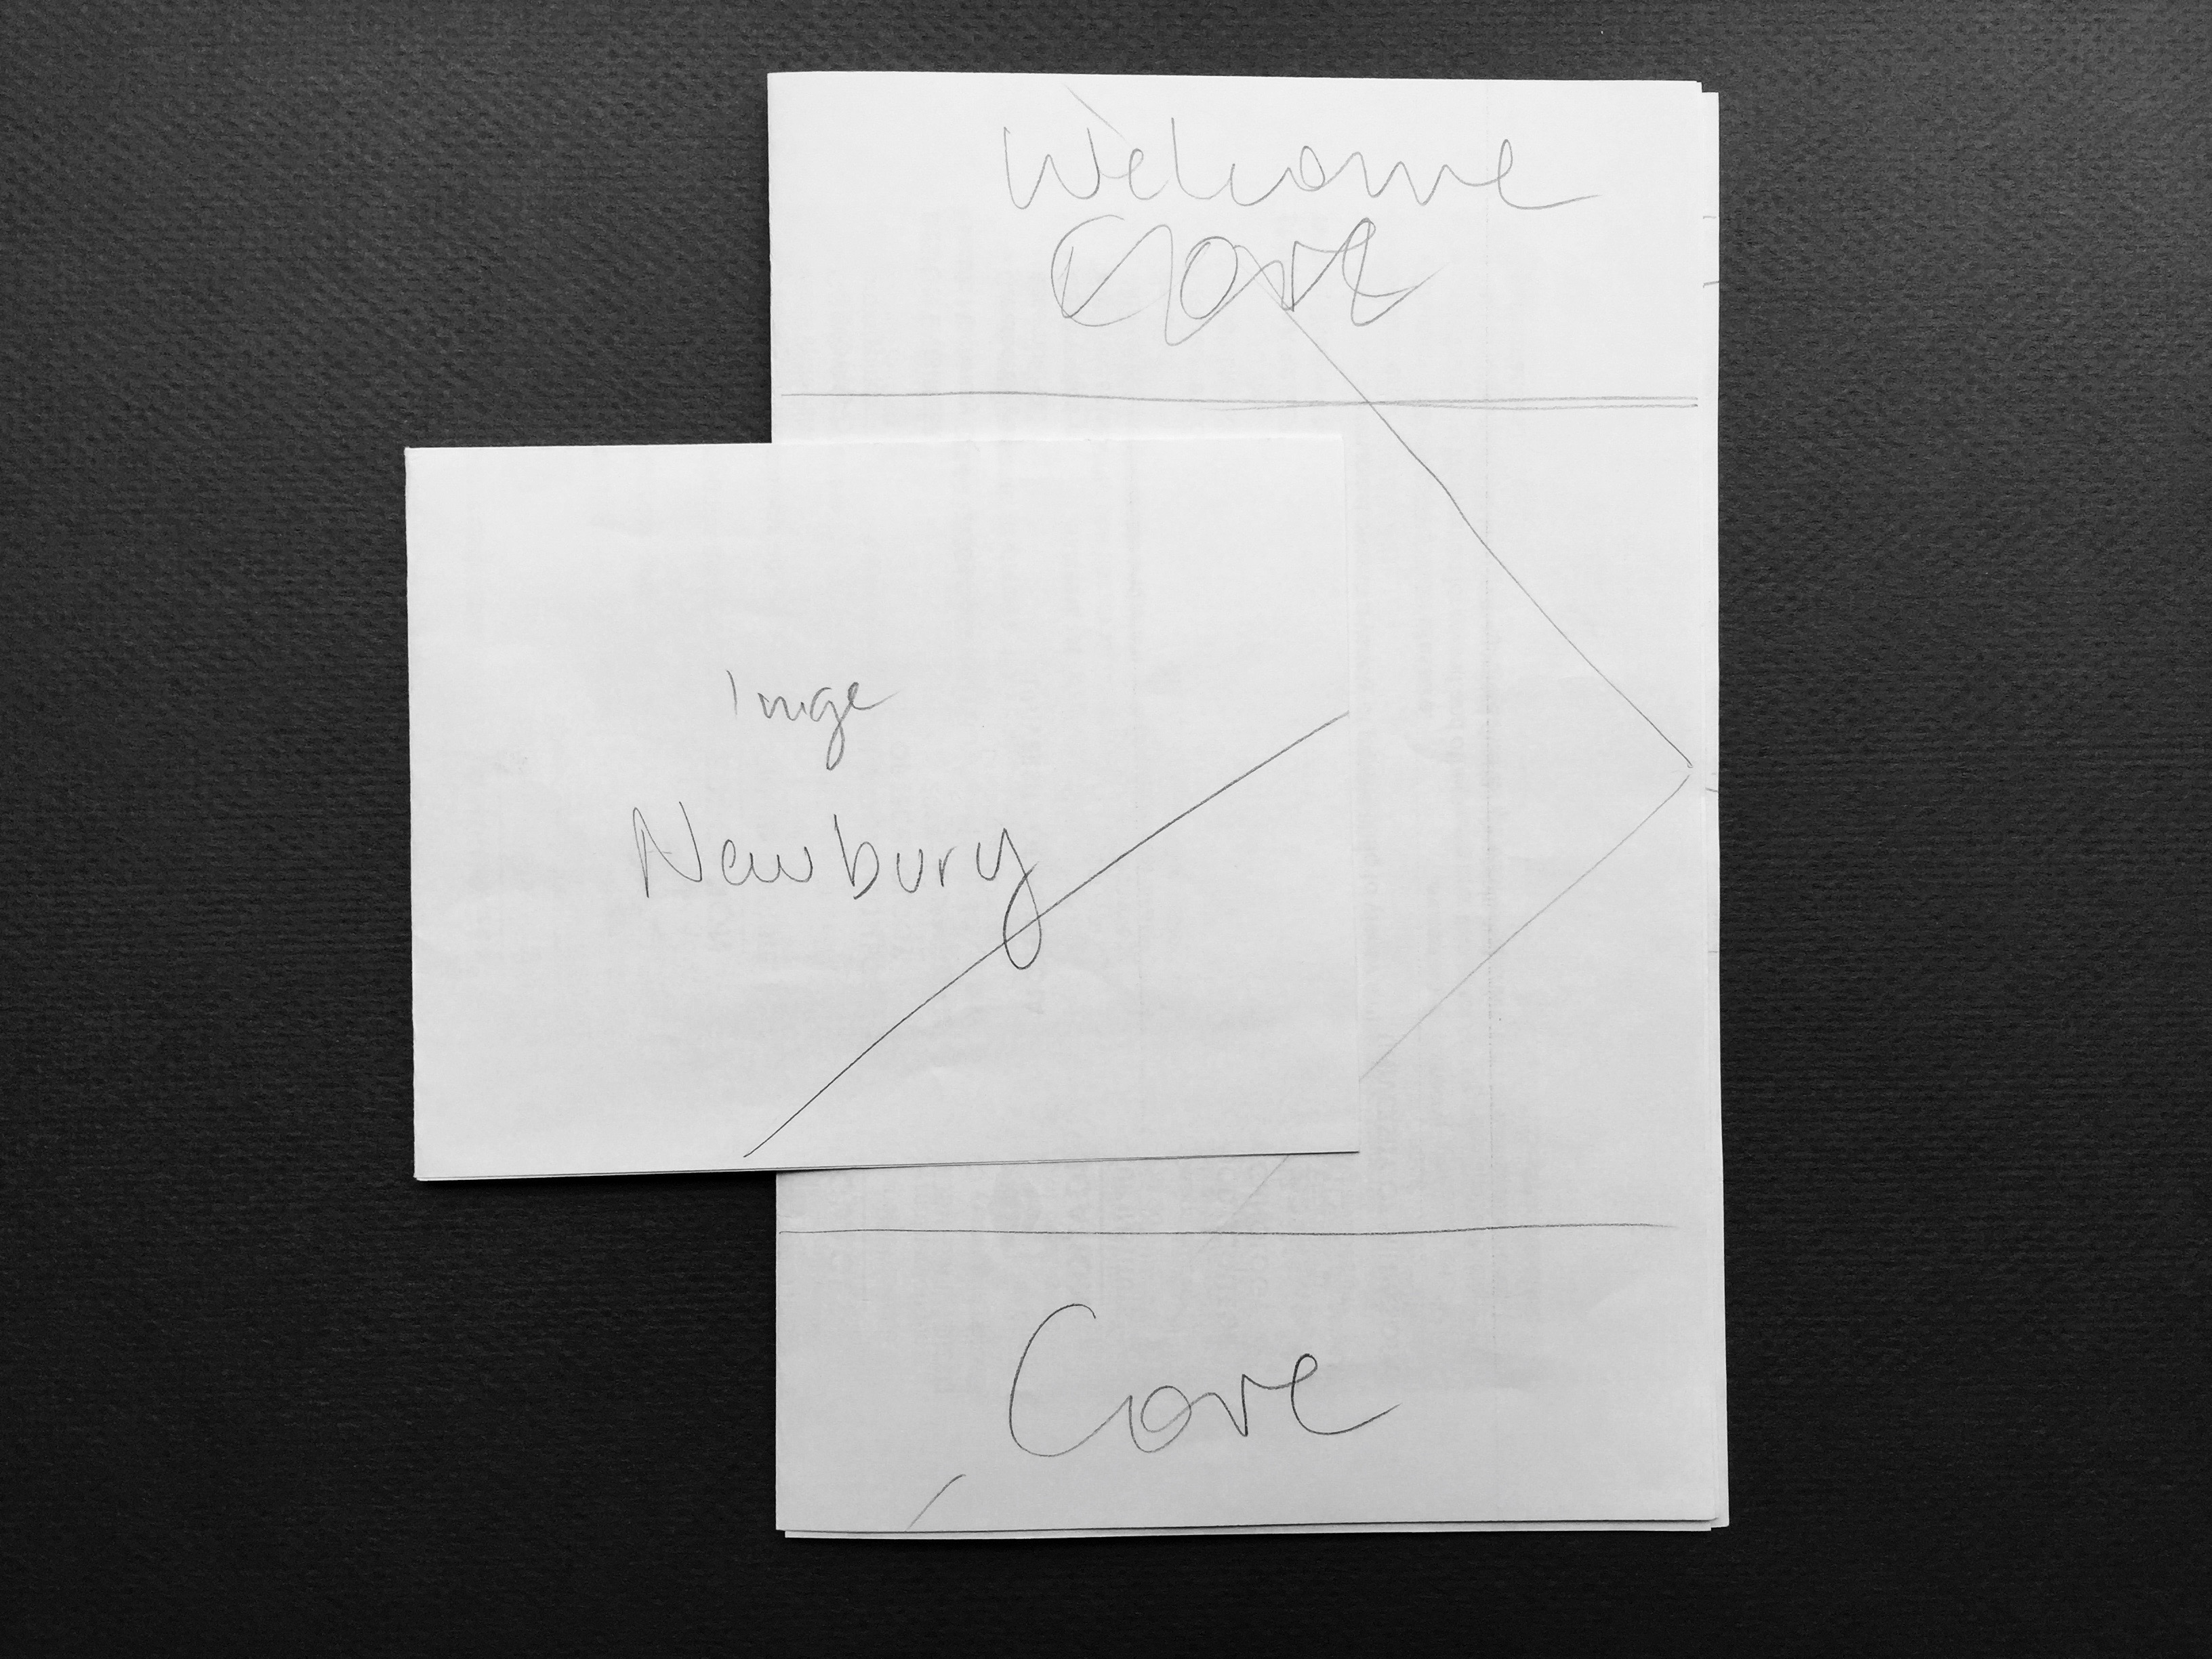 Welcome
Cove
Inge
Newbury
Cove